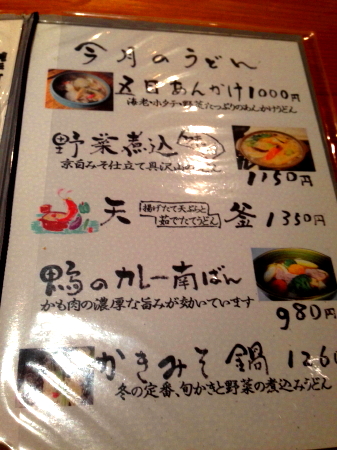 今月のうどん
五目あんかけ 1000円
海老・ホタテ・野菜たっぷりのあんかけうどん
野菜煮込
京白みそ仕立て、具沢山
1150円
天 揚げたて天ぷらと 茹でたてうどん 釜 1350円
鴨のカレー南ばん
かも肉の濃厚な旨みが効いています
980円
かきみそ鍋 126
冬の定番、旬かきと野菜の煮込みうどん